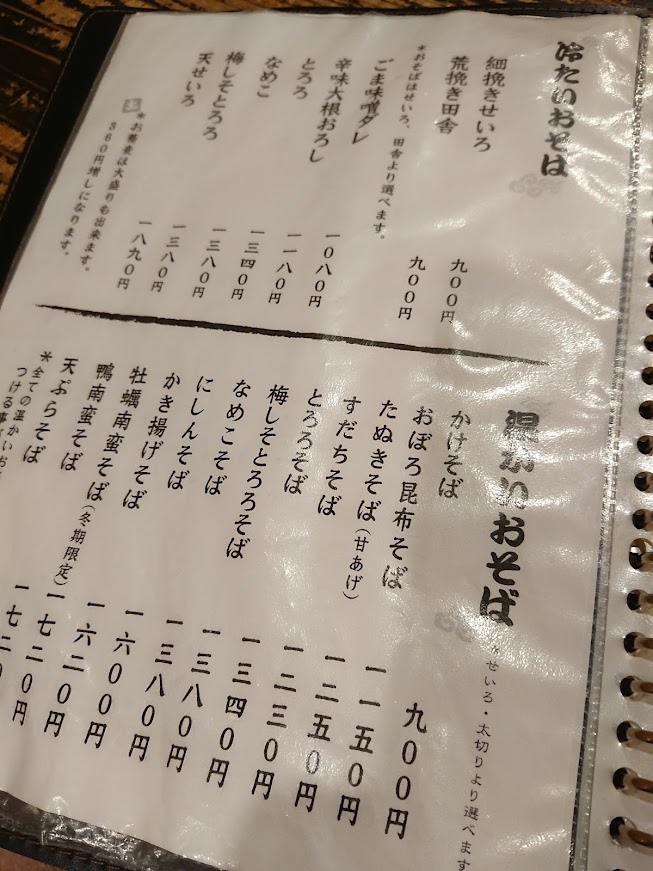 冷たいおそば
細挽きせいろ 九〇〇円
荒挽き田舎 九〇〇円
*おそばはせいろ、田舎より選べます。
ごま味噌ダレ 一〇八〇円
辛味大根おろし 一一八〇円
とろろ 一三四〇円
なめこ 一三八〇円
梅しそとろろ 一三八〇円
天せいろ 一八九〇円
*お蕎麦は大盛りも出来ます。
360円増しになります。
温かいおそば
*せいろ・太切りより選べます
かけそば 九〇〇円
おぼろ昆布そば 一一五〇円
たぬきそば(甘あげ) 一二五〇円
すだちそば 一二三〇円
とろろそば 一三四〇円
梅しそとろろそば 一三八〇円
なめこそば 一三八〇円
にしんそば 一六〇〇円
かき揚げそば 一六二〇円
牡蠣南蛮そば 一七二〇円
鴨南蛮そば(冬期限定) 一七二〇円
天ぷらそば
*全ての温かいお
つける事